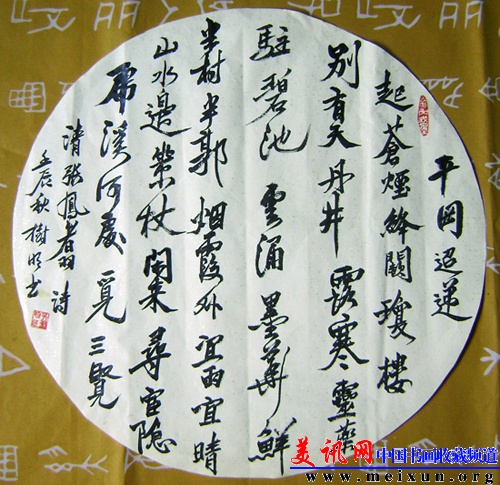 平岡迢递
起蒼煙絳闕瓊樓
别有天丹井露寒靈藥
駐碧池雲涌墨華鮮
半村半郭烟霞外宜雨宜晴
山水邊策杖閑来尋官隐
虎溪何處覓三賢
清張鳳翥诗
壬辰秋樹明书
美讯网 中国书画收藏频道
www.meixun.org